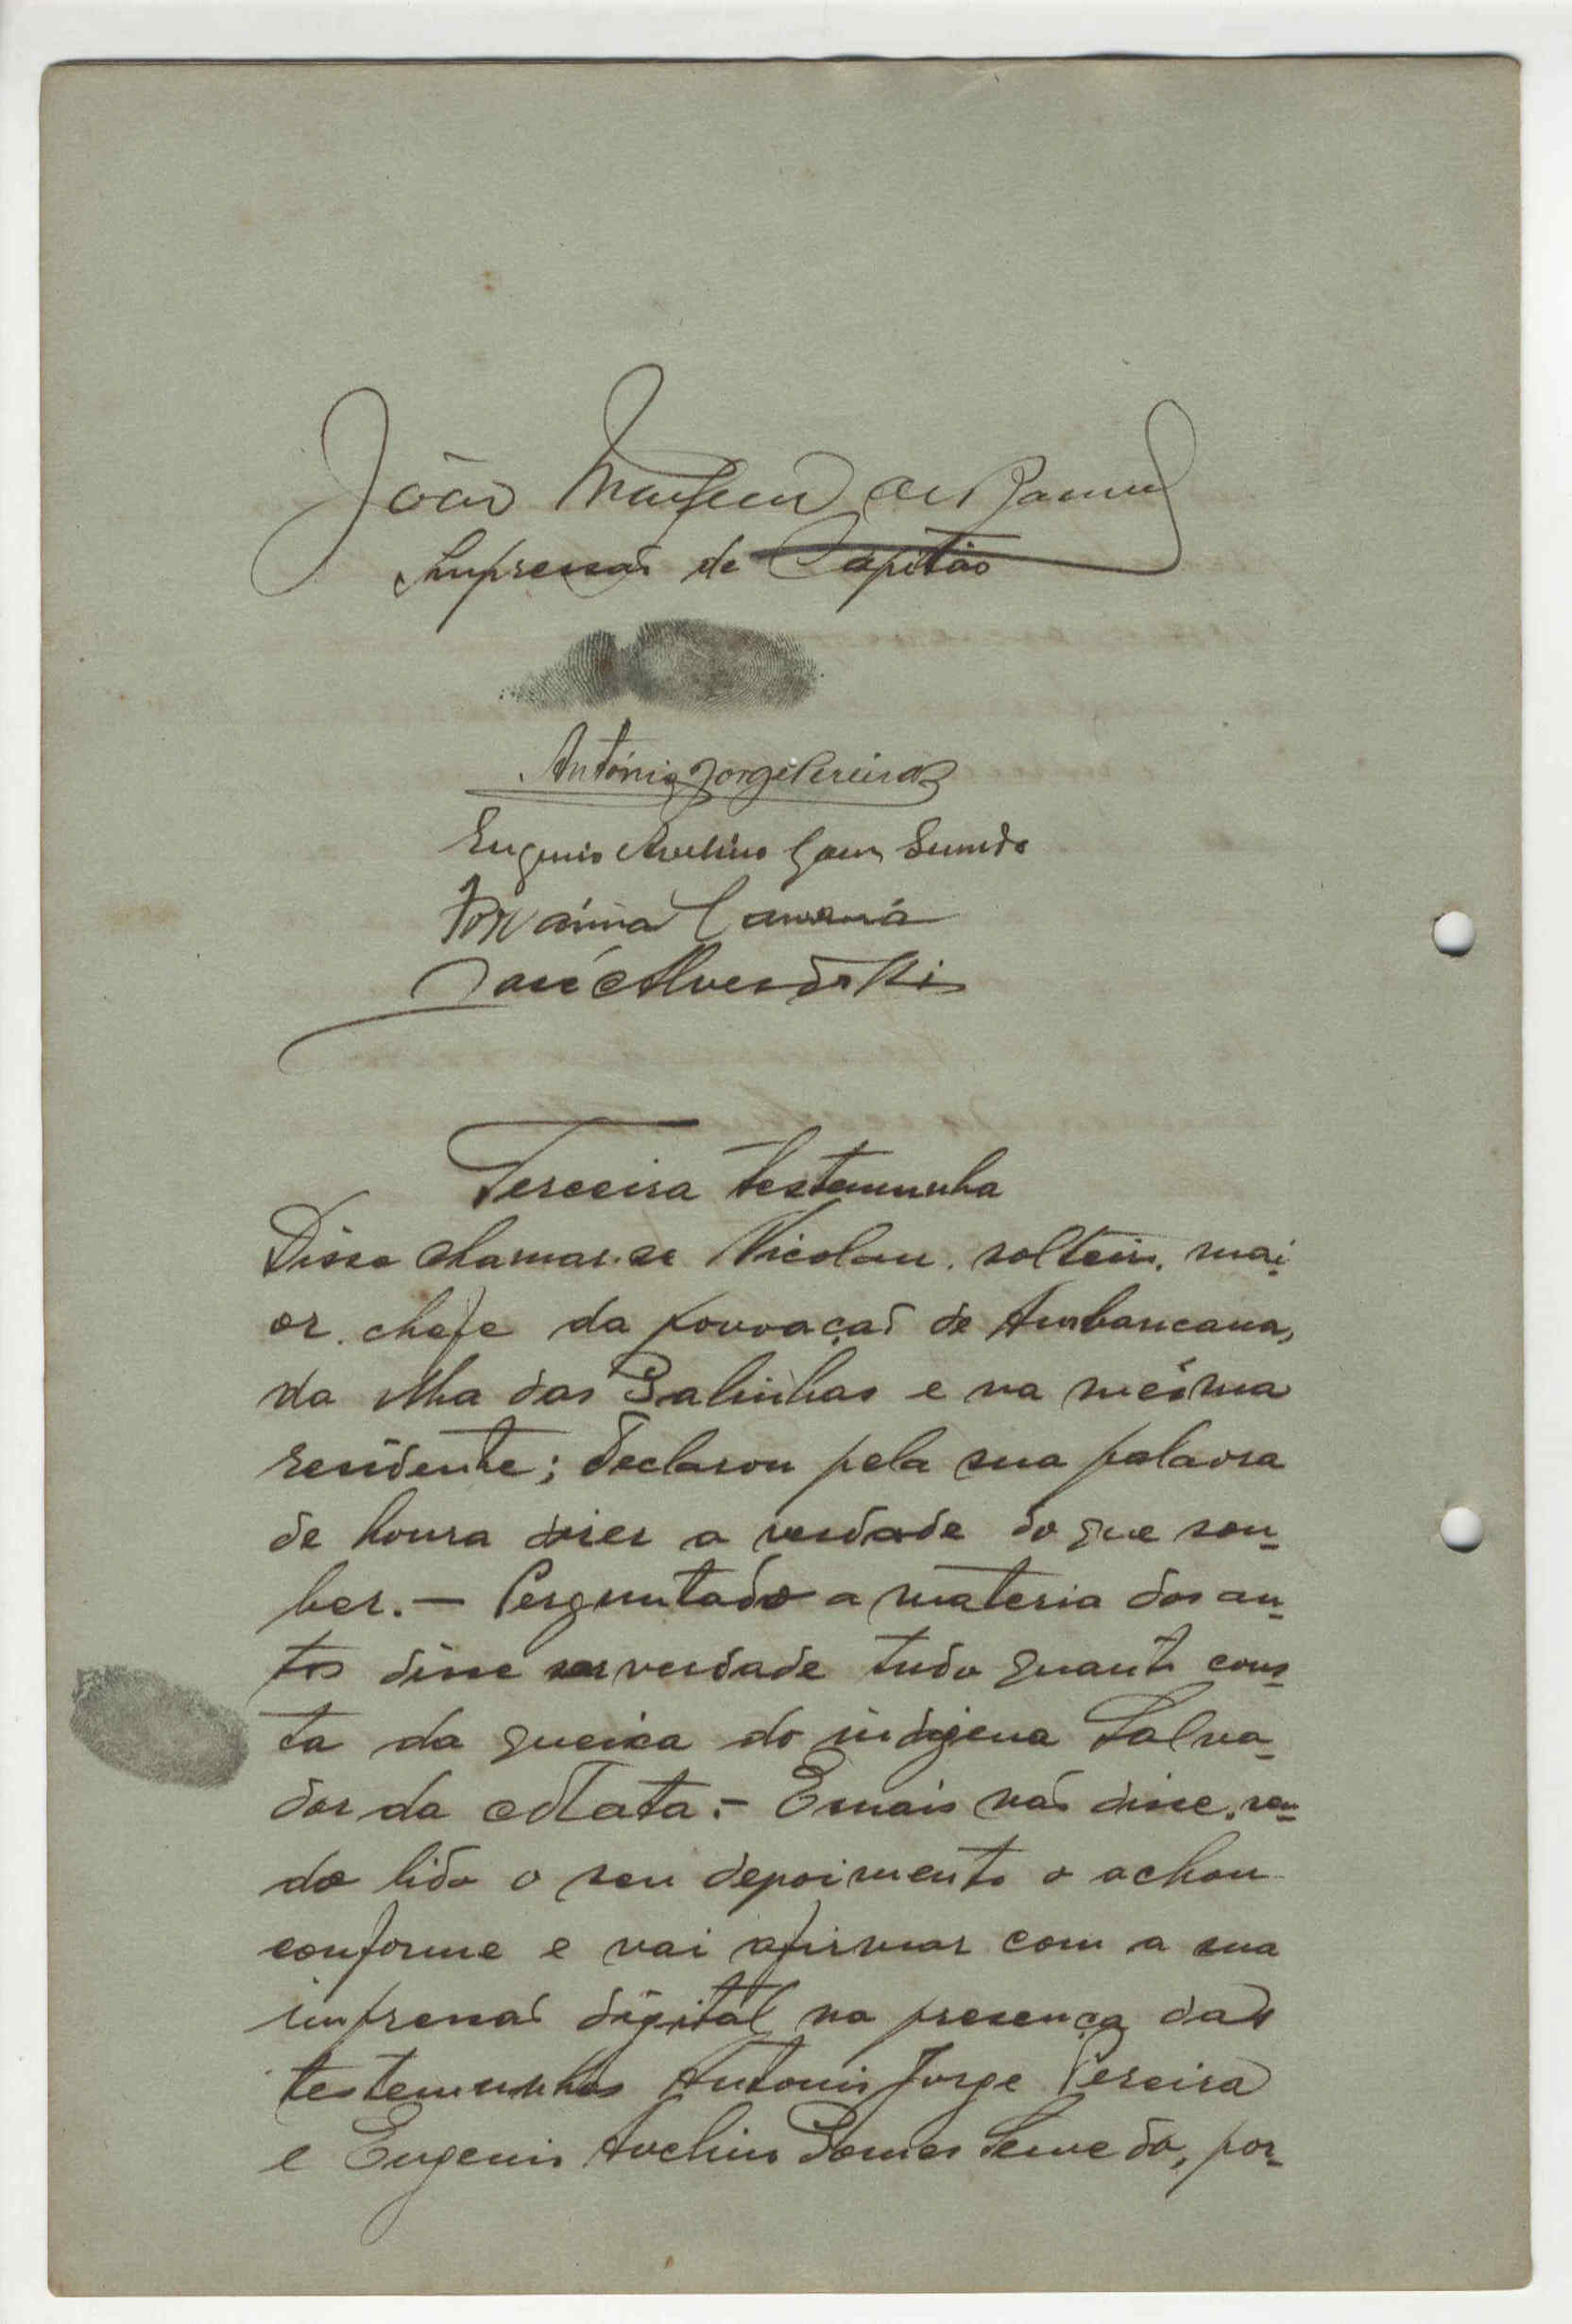 João de
Impressão de Capitão
António Jorge Pereira
Eugenio Avelino Gomes Semedo
Camará
José Alves dos Reis
Terceira testemunha
Disse chamar-se Nicolau, solteiro, mai
or, chefe da povoação de Ambancana,
da ilha das Galinhas e na mésma
residente; declarou pela sua palavra
de honra dizer a verdade do que sou-
ber. — Perguntado a materia dos au-
tos disse ser verdade tudo quanto cons-
ta da queixa do indigena Salva-
dor da Mata. — E mais não disse, sen-
do lido o seu depoimento o achou
conforme e vai afirmar com a sua
impressão digital na presença das
testemunhas Antonio Jorge Pereira
e Eugenio Avelino Gomes Semedo, por-